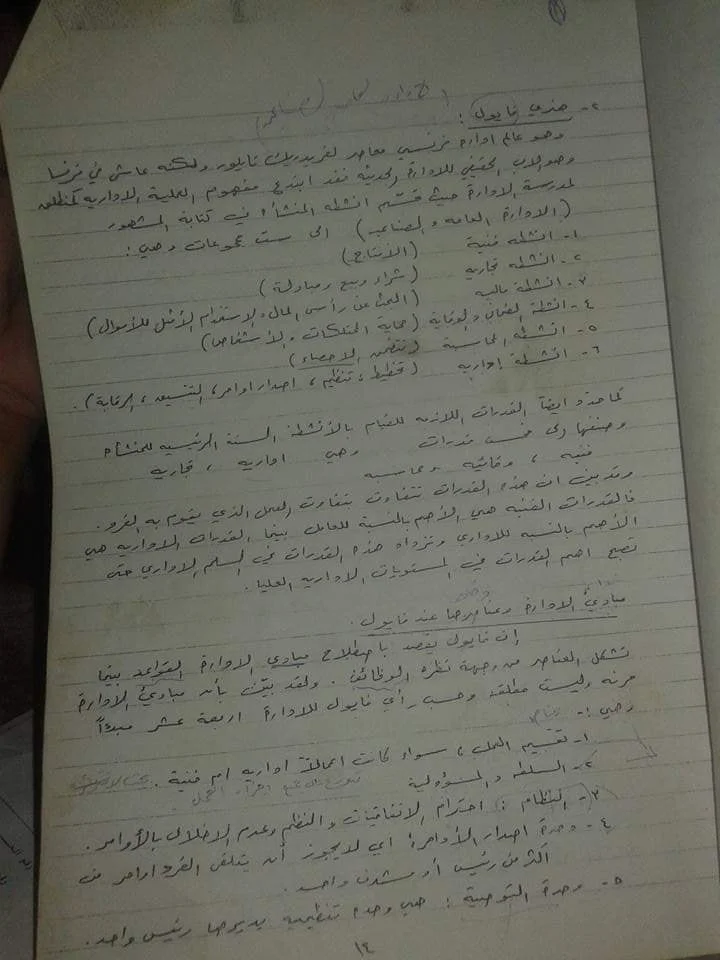 ٢- هنري فايول :
وهو عالم ادارة فرنسي معاصر لفريدريك تايلور ولكنه عاش في فرنسا
وهو الاب الحقيقي للادارة الحديثة فقد ابتدع مفهوم العملية الادارية كمنطلق
لمدرسة الادارة حيث قسم انشطة المنشأة في كتابة المشهور
(الادارة العامه والصناعيه) الى ست مجموعات وهي :
١- انشطة فنية (الانتاج)
٢- انشطه تجاريه (شراء وبيع ومبادلة)
٣- انشطة ماليه (البحث عن رأس المال والاستخدام الأمثل للأموال)
٤- انشطة الضمان والوقاية (حماية الممتلكات والأشخاص)
٥- انشطة المحاسبة (تتضمن الاحصاء)
٦- انشطة إداريه (تخطيط ، تنظيم ، اصدار اوامر ، التنسيق ، الرقابة) .
كما حدد ايضاً القدرات اللازمه للقيام بالأنشطة الستة الرئيسيه للمنشأة
وصنفها الى خمس قدرات وهي اداريه ، تجاريه
فنيه ، وقائيه ومحاسبه
وقد بين ان هذه القدرات تتفاوت بتفاوت العمل الذي يقوم به الفرد .
فالقدرات الفنيه هي الأهم بالنسبة للعامل بينما القدرات الاداريه هي
الأهم بالنسبه للاداري وتزداد هذه القدرات في السلم الاداري حتى
تصبح اهم القدرات في المستويات الاداريه العليا .
مبادئ الادارة وعناصرها عند فايول .
إن فايول يقصد باصطلاح مبادئ الادارة القواعد بينما
تشمل العناصر من وجهة نظره الوظائف . ولقد بين بأن مبادئ الادارة
مرنه وليست مطلقه وحسب رأي فايول للادارة اربعة عشر مبدءاً
وهي :-
١- تقسيم العمل ، سواء كانت اعمالاً اداريه ام فنية .
٢- السلطه والمسؤولية
٣- النظام : احترام الاتفاقيات والنظم وعدم الاخلال بالأوامر .
٤- وحدة اصدار الأوامر : اي لا يجوز أن يتلقى الفرد اوامر من
اكثر من رئيس أو مشرف واحد .
٥- وحدة التوجية : هي وحدة تنظيمية يديرها رئيس واحد .
١٤